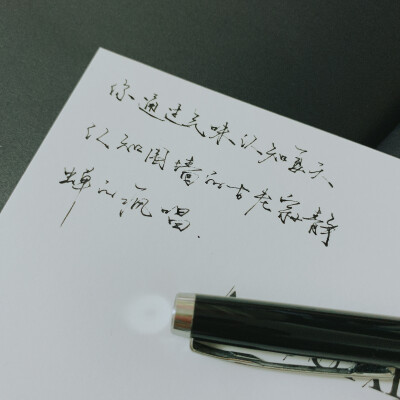 你通过气味认知夏天
认知围墙的古老寂静
蝉的讽唱.